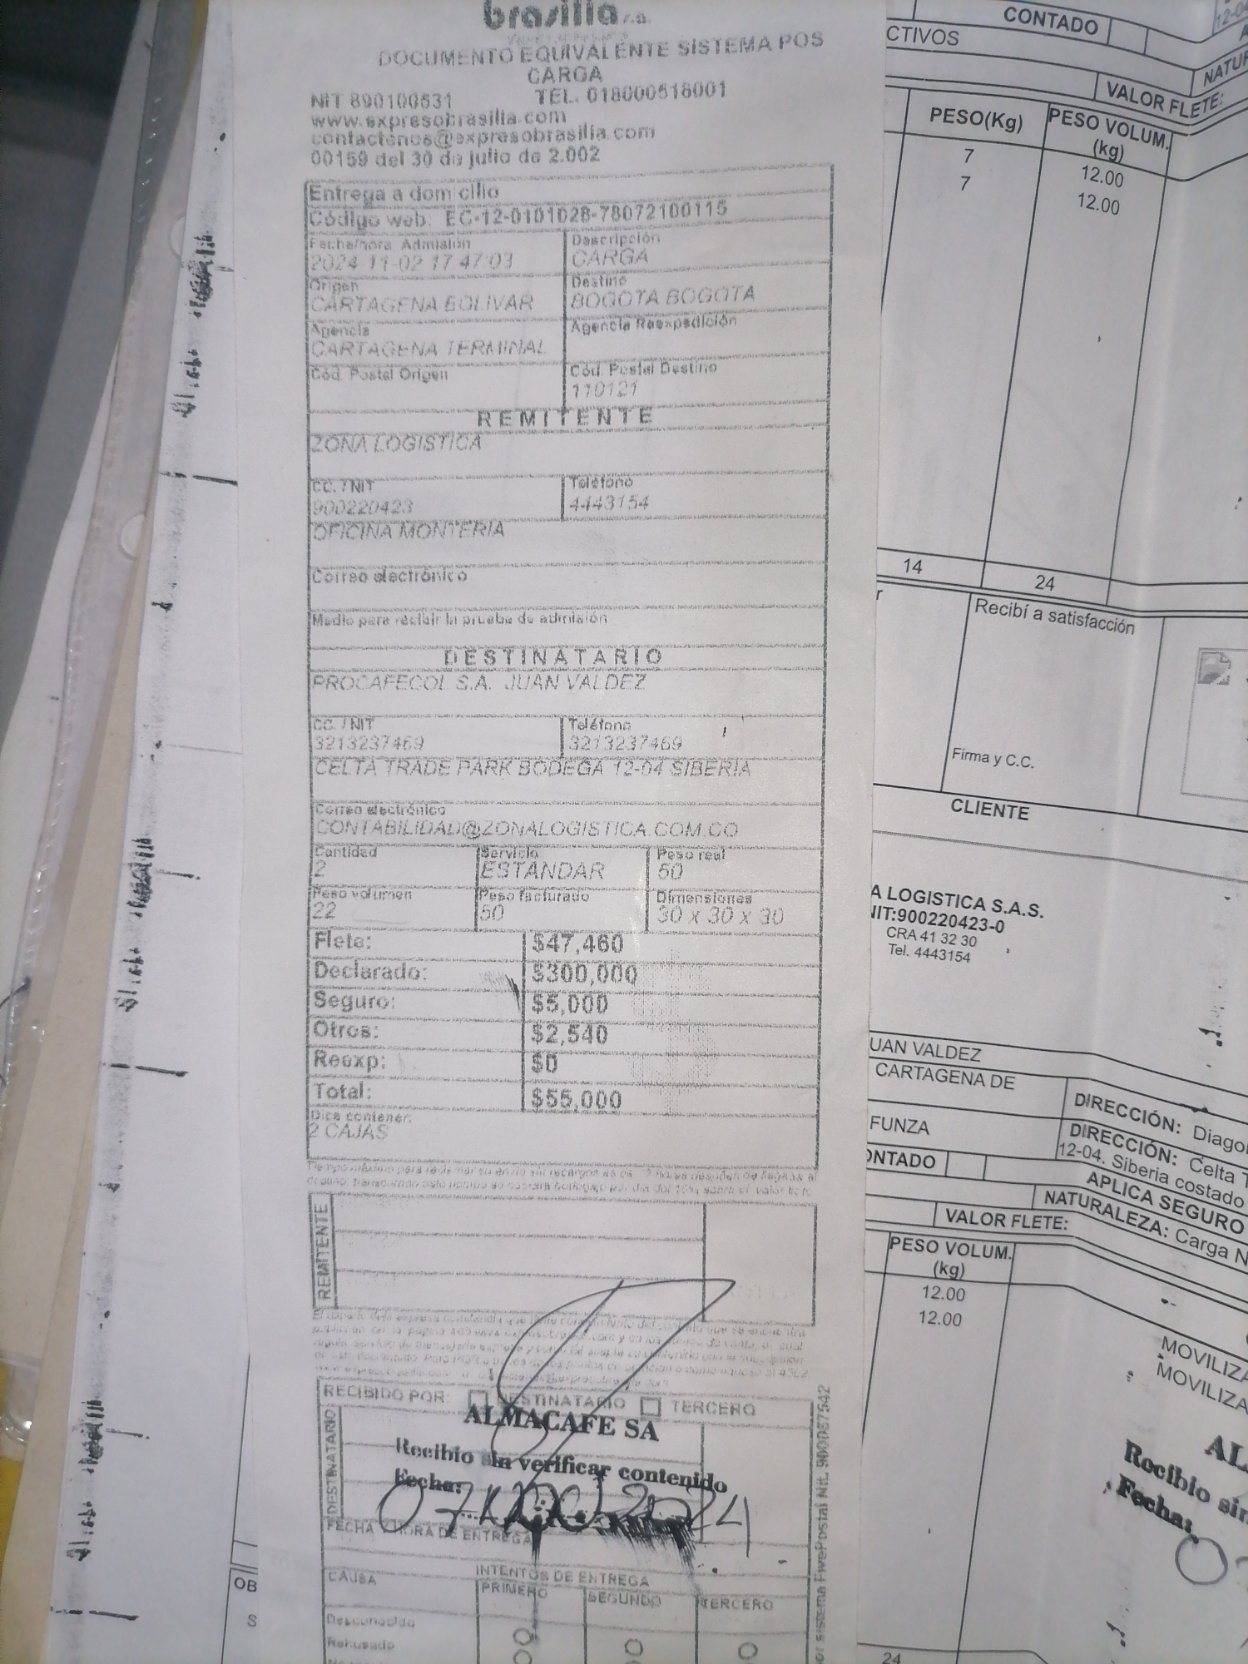 brasilia s.a.
DOCUMENTO EQUIVALENTE SISTEMA POS
CARGA
NIT 890100531 TEL. 018000518001
www.expresobrasilia.com
contactenos@expresobrasilia.com
00159 del 30 de julio de 2.002
Entrega a domicilio
Código web: EC-12-0101028-78072100115
Fecha/hora Admisión Descripción
2024-11-02 17:47:03 CARGA
Origen Destino
CARTAGENA BOLIVAR BOGOTA BOGOTA
Agencia Agencia Reexpedición
CARTAGENA TERMINAL
Cód. Postal Origen Cód. Postal Destino
110121
REMITENTE
ZONA LOGISTICA
CC. / NIT Teléfono
900220423 4443154
OFICINA MONTERIA
Correo electrónico
Medio para recibir la prueba de admisión
DESTINATARIO
PROCAFECOL S.A. JUAN VALDEZ
CC. / NIT Teléfono
3213237469 3213237469
CELTA TRADE PARK BODEGA 12-04 SIBERIA
Correo electrónico
CONTABILIDAD@ZONALOGISTICA.COM.CO
Cantidad Servicio Peso real
2 ESTANDAR 50
Peso volumen Peso facturado Dimensiones
22 50 30 x 30 x 30
Flete: $47,460
Declarado: $300,000
Seguro: $5,000
Otros: $2,540
Reexp: $0
Total: $55,000
Dice contener:
2 CAJAS
REMITENTE
RECIBIDO POR: DESTINATARIO TERCERO
ALMACAFE SA
Recibio sin verificar contenido
Fecha:
DESTINATARIO
FECHA Y HORA DE ENTREGA
CAUSA INTENTOS DE ENTREGA
PRIMERO SEGUNDO TERCERO
Desconocido
Rehusado
sistema FivePostal Nit. 900087542
CONTADO
CTIVOS
VALOR FLETE:
PESO(Kg) PESO VOLUM.
(kg)
7 12.00
7 12.00
14 24
Recibí a satisfacción
Firma y C.C.
CLIENTE
A LOGISTICA S.A.S.
NIT:900220423-0
CRA 41 32 30
Tel. 4443154
UAN VALDEZ
CARTAGENA DE
DIRECCIÓN: Diago
FUNZA
DIRECCIÓN: Celta T
12-04. Siberia costado
ONTADO
APLICA SEGURO
NATURALEZA: Carga N
VALOR FLETE:
PESO VOLUM.
(kg)
12.00
12.00
MOVILIZA
MOVILIZA
AL
Recibio sin
Fecha:
24
OB
S